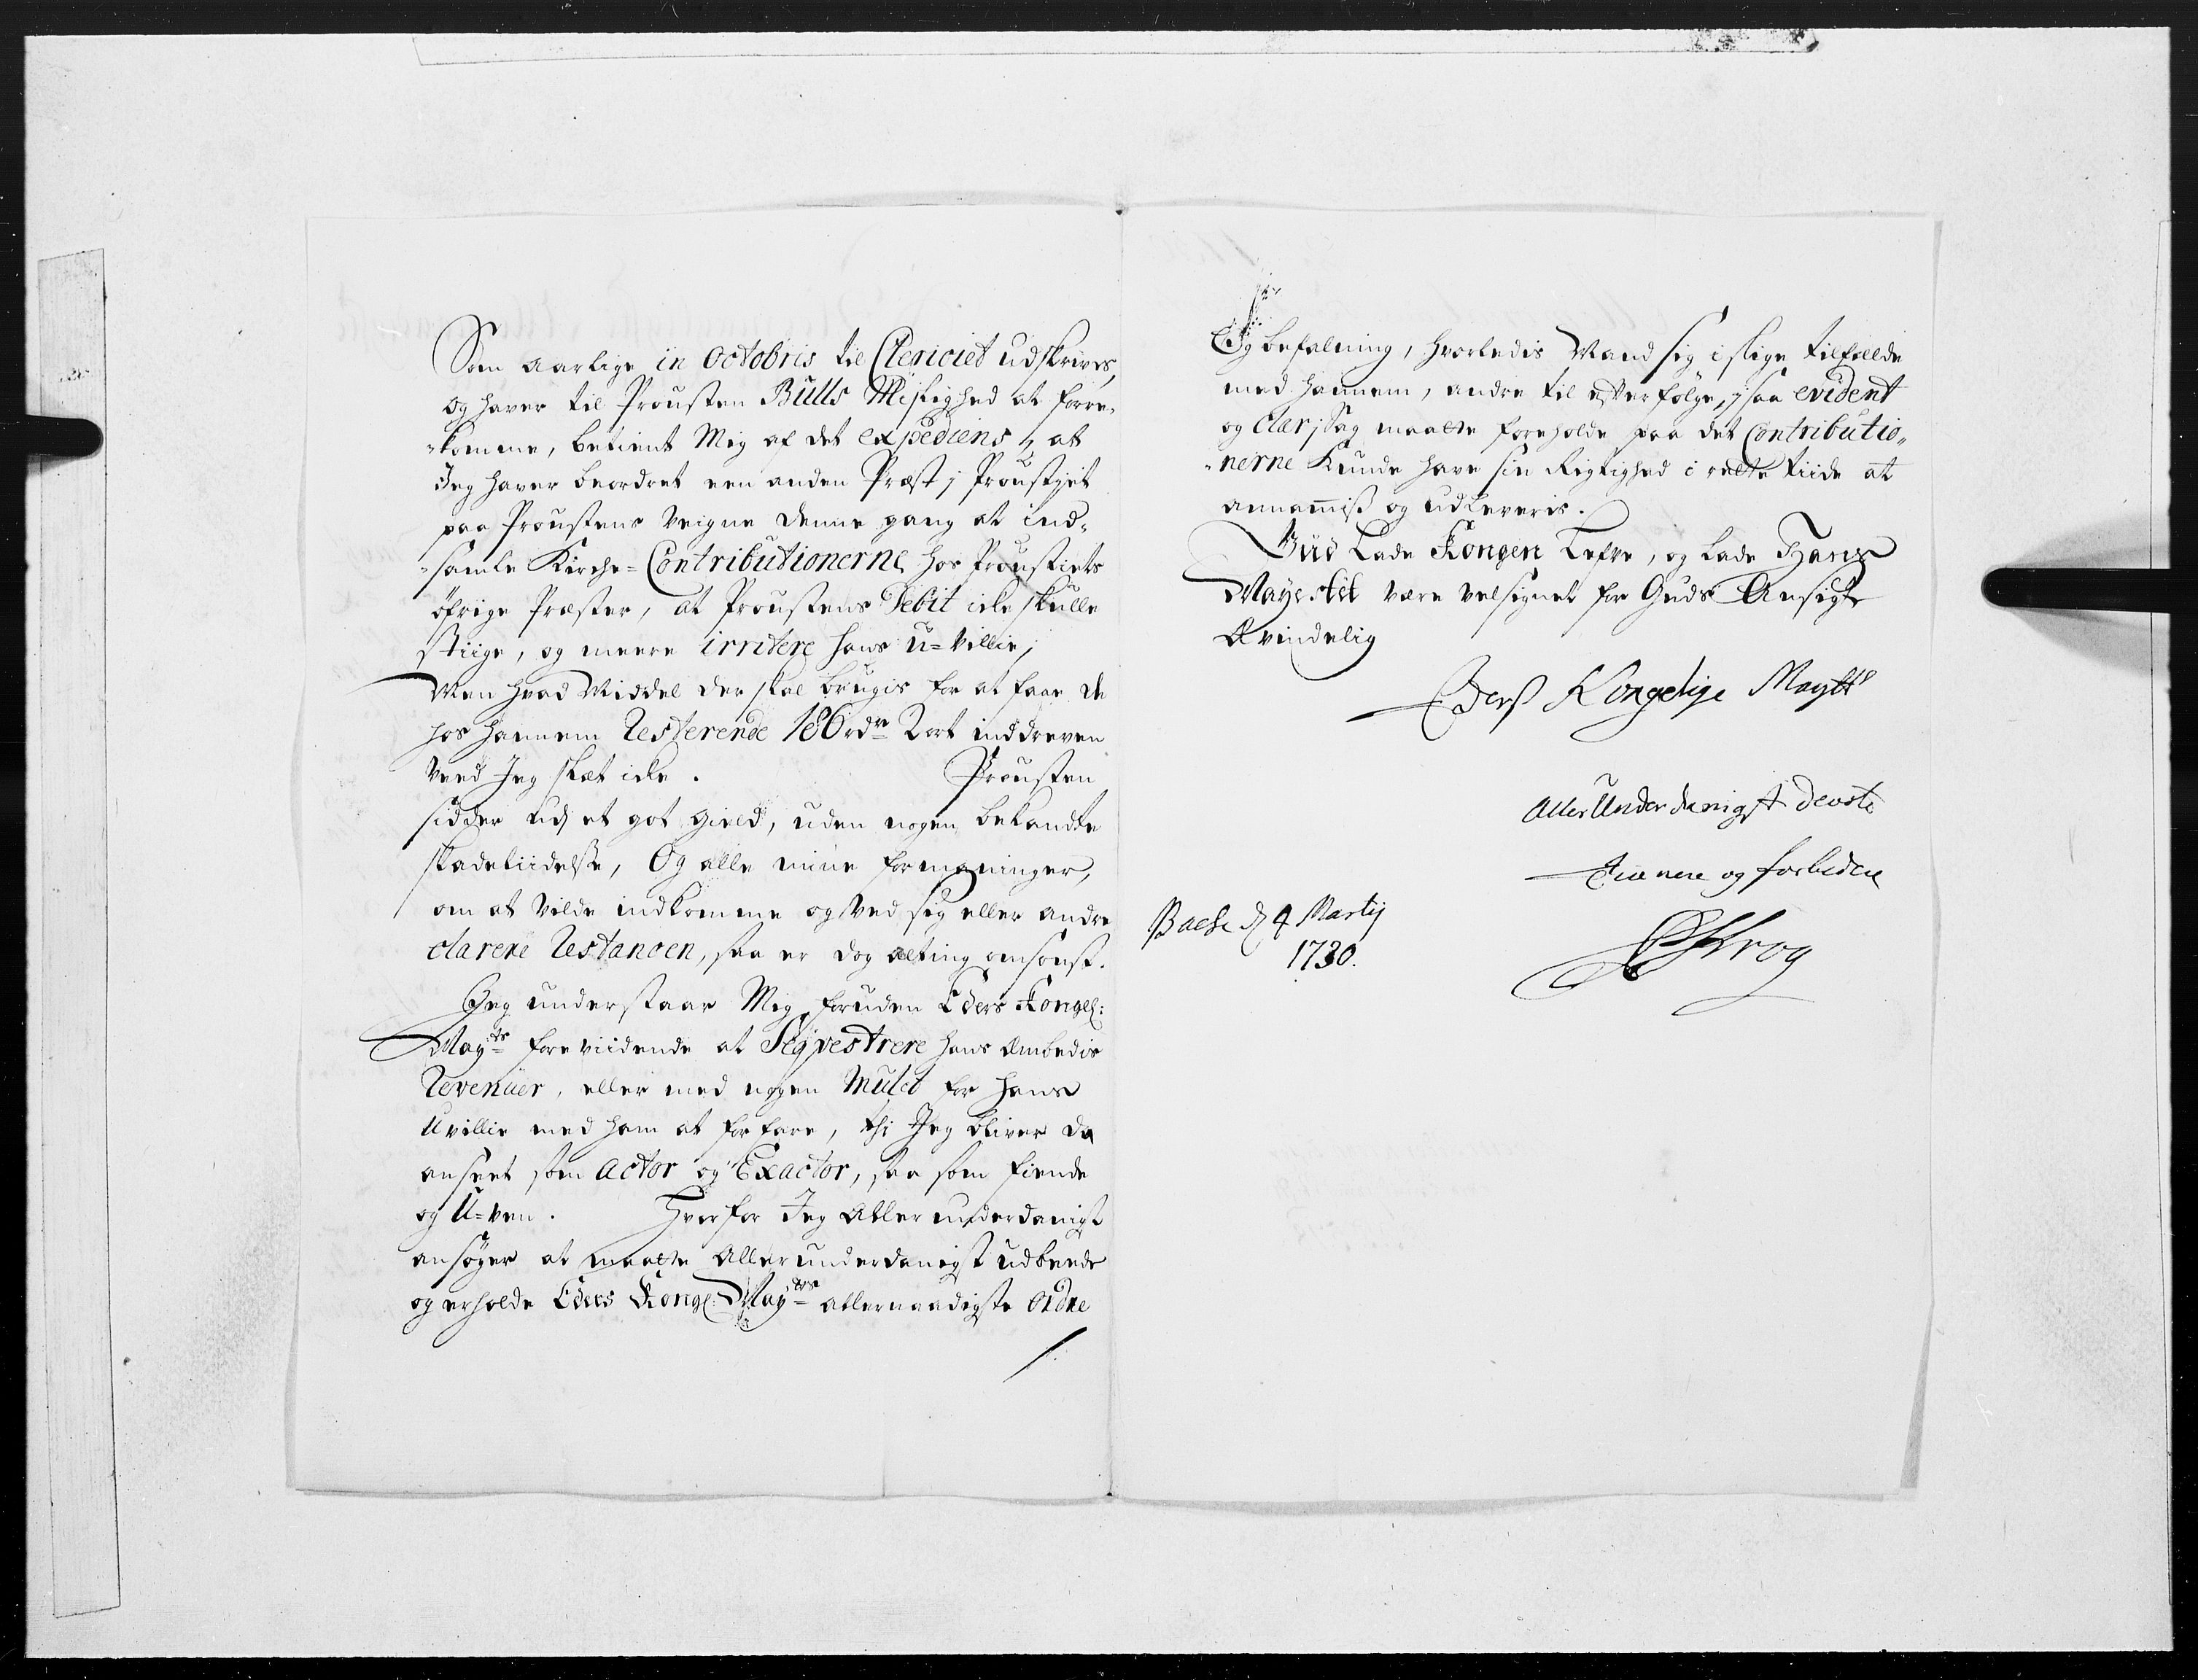 Som aarlige in Octobris til Clericiet udskrives,
og haver til Prousten Bulls Mislighed at forre¬
¬komme, betient Mig af det expediens, at
Jeg haver beordret een anden Præst j Proustjet
paa Proustens veigne denne gang at ind¬
¬samle Kirche=Contributionerne hos Proustiets
öfrige Præster, at Proustens Debit icke skulle
stiige, og meere irritere hans u=villie;
Men hvad Middel der skal brugis for at faae de
hos hannem Resterende 186 rdr 2 ort inddreven
veed Jeg slæt icke. Prousten
sidder udj et got gield, uden nogen bekandte
skadeliidelse, Og alle mine formaninger,
om at vilde indkomme og ved sig eller andre
clarere Restancen, saa er dog alting omsonst.
Jeg understaar Mig foruden Eders Kongel:
Mayts foreviidende at Seqvestrere hans Embedis
Revenüer, eller med nogen Mulct for hans
Uvillie med ham at forfare, thi Jeg bliver da
anseet som Actor og Exactor, saa som fiende
og U=ven. Hvorfor Jeg Allerunderdanigst
ansöger at maatte Allerunderdanigst udbeede
og erholde Eders Kongl: Mayts allernaadigste Ordre
Og befalning, hvorledis Mand sig i slige tilfælde
med hannem, andre til efterfölge, j saa evident
og clar sag maatte foreholde paa det Contributio¬
¬nerne Kunde have sin Rigtighed i rette tiide at
annammis og udleveris.
Gud Lade Kongen Lefve, og lade Hans
Mayestet være velsignet for Guds Ansigt
Ævindelig
Eders Kongelige Maytts
Allerunderdanigst devote
Tienere og forbedere
Bache d. 4 Martij
1730.
Krog